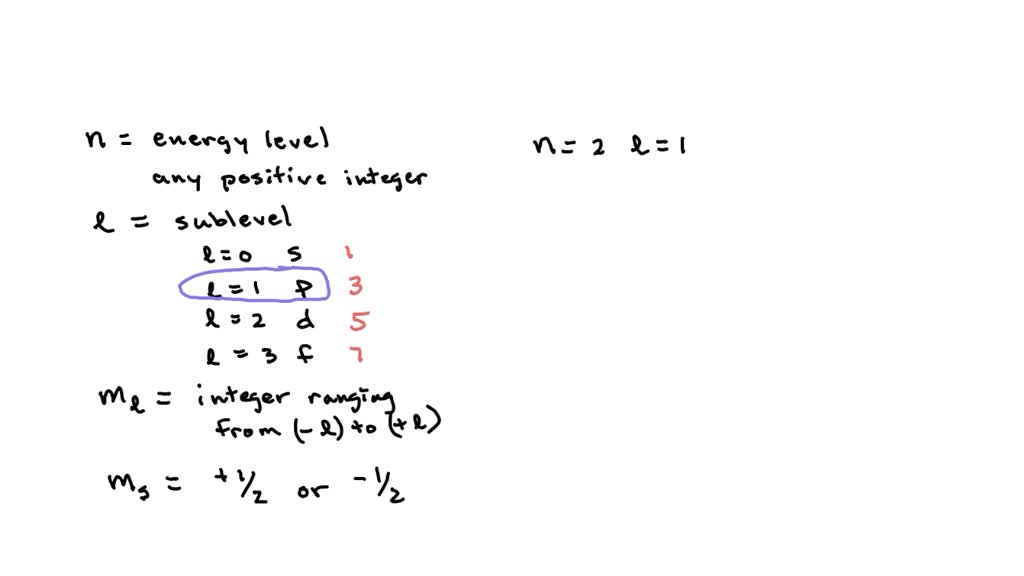 n = energy level
any positive integer
l = sublevel
l = 0 s 1
l = 1 p 3
l = 2 d 5
l = 3 f 7
mₗ = integer ranging
from (- l) to (+ l)
mₛ = +1/2 or -1/2
n = 2 l = 1